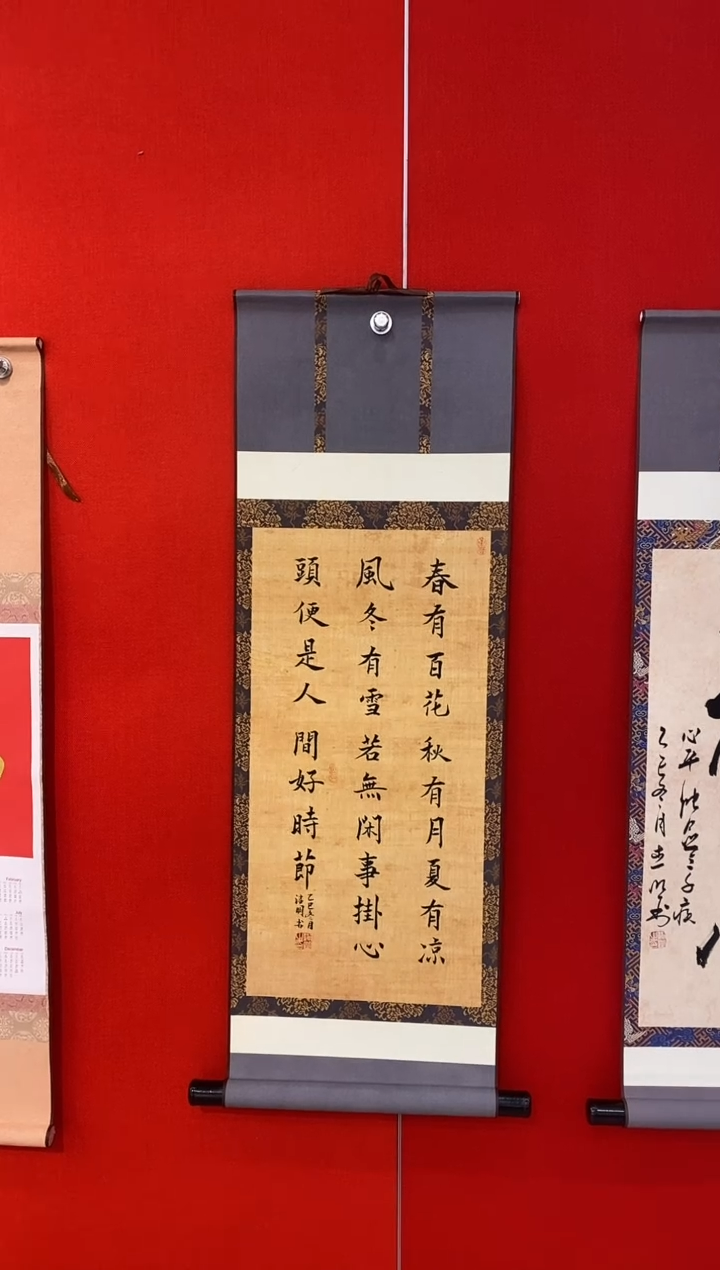 春有百花秋有月夏有凉
風冬有雪若無閑事掛心
頭便是人間好時節
乙巳冬月
February
July
December
心平
乙巳冬月